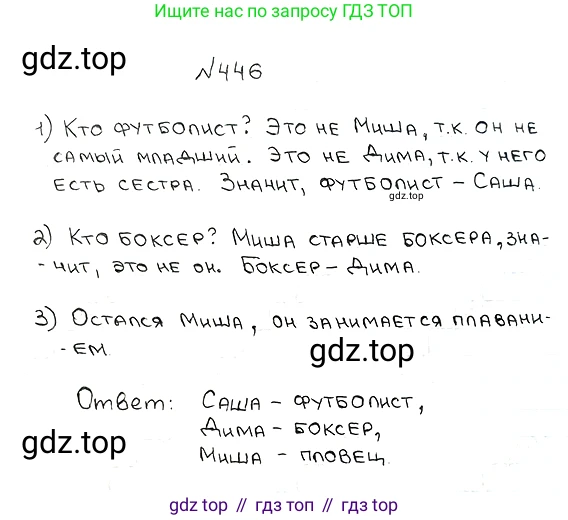 Ищите нас по запросу ГДЗ ТОП
gdz.top
№446
1) Кто футболист? Это не Миша, т.к. он не
самый младший. Это не Дима, т.к. у него
есть сестра. Значит, футболист – Саша.
gdz.top
2) Кто боксер? Миша старше боксера, зна-
-чит, это не он. Боксер – Дима.
3) Остался Миша, он занимается плавани-
-ем.
gdz.top
Ответ: Саша – футболист,
Дима – боксер,
gdz.top
Миша – пловец.
gdz.top // гдз топ // гдз топ